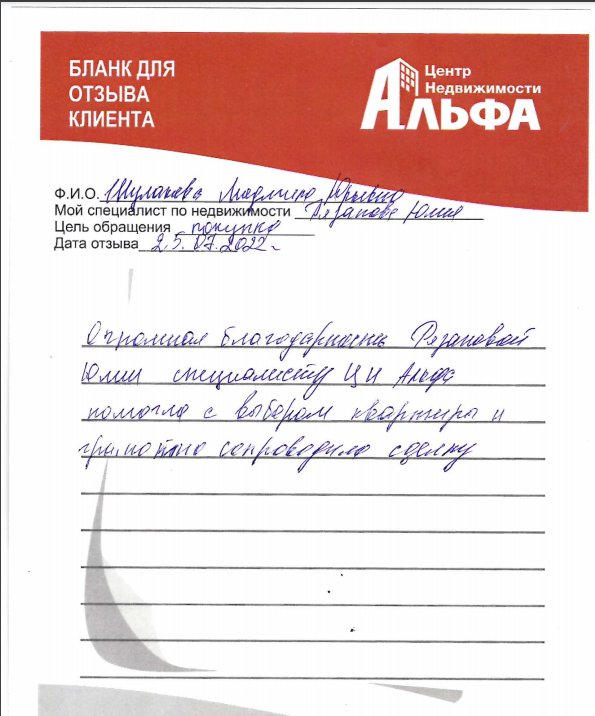 БЛАНК ДЛЯ
ОТЗЫВА
КЛИЕНТА
Центр
Недвижимости
АЛЬФА
Ф.И.О. Шулакова Людмила Юрьевна
Мой специалист по недвижимости Рязанова Юлия
Цель обращения покупка
Дата отзыва 25.07.2022г.
Огромная благодарность Рязановой
Юлии специалисту ЦН Альфа
помогла с выбором квартиры и
грамотно сопроводила сделку